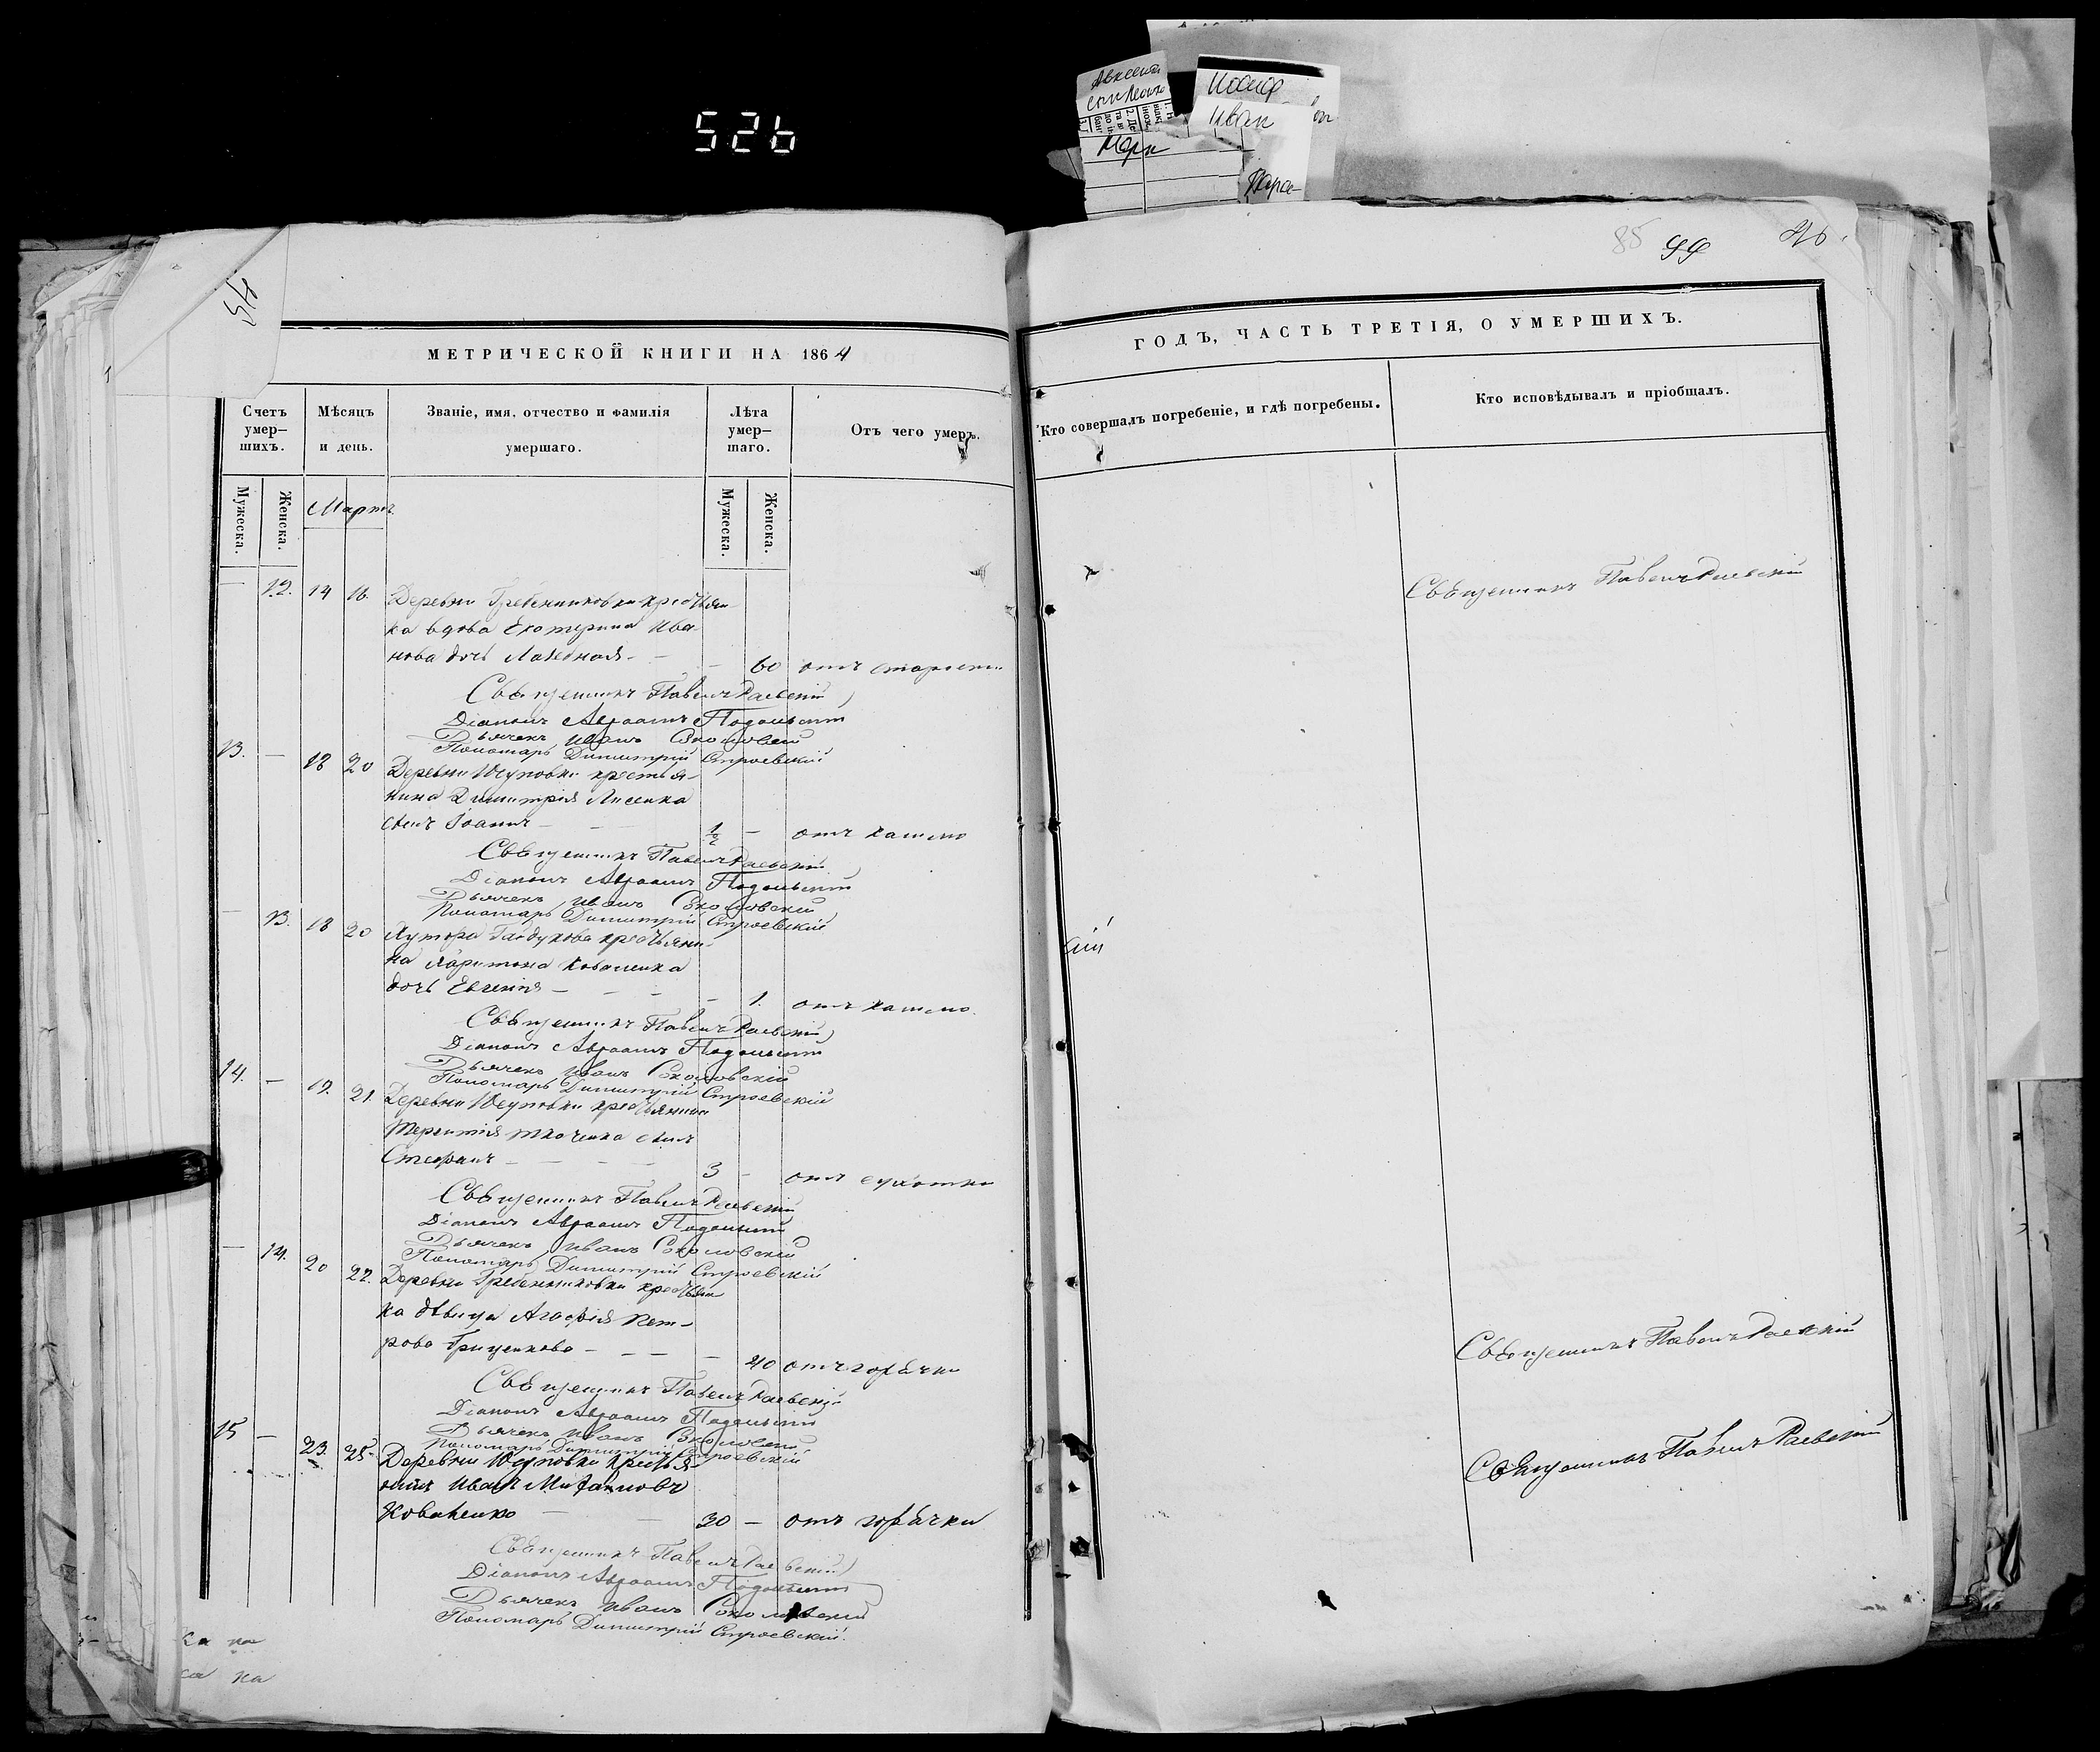 526
Авксент
Иван
Мари
85 99
МЕТРИЧЕСКОЙ КНИГИ НА 1864
ГОДЪ, ЧАСТЬ ТРЕТІЯ, О УМЕРШИХЪ.
Счетъ умер–шихъ.
Мѣсяцъ и день.
Званіе, имя, отчество и фамилія умершаго.
Лѣта умер–шаго.
Отъ чего умеръ.
Кто совершалъ погребеніе, и гдѣ погребены.
Кто исповѣдывалъ и пріобщалъ.
Мужеска.
Женска.
Мартъ
Мужеска.
Женска.
— 12. 14 16. Деревни Гребенниковки крестьян-
ка вдова Екатерина Ива-
нова дочь — — 60 отъ старости
Священникъ Павелъ Раевскій
Священникъ Павелъ Раевскій
Діаконъ Авраамъ Подольскій
Дьячекъ Иванъ Соколовскій
Пономарь Димитрій Строевскій
13. — 18 20 Деревни Юсуповки крестья-
нина Димитрія Лисенка
сынъ Іоаннъ — — 1/2 — отъ кашлю
Священникъ Павелъ Раевскій
Діаконъ Авраамъ Подольскій
Дьячекъ Иванъ Соколовскій
Пономарь Димитрій Строевскій
— 13. 18 20 Хутора Гайдукова крестьяни-
на Харитона Коваленка
дочь Евгенія — — — — 1. отъ кашлю.
Священникъ Павелъ Раевскій
Діаконъ Авраамъ Подольскій
Дьячекъ Иванъ Соколовскій
Пономарь Димитрій Строевскій
14. — 19. 21. Деревни Юсуповки крестьянина
Терентія Ткаченка сынъ
Стефанъ — — — — 3 — отъ сухотки
Священникъ Павелъ Раевскій
Діаконъ Авраамъ Подольскій
Дьячекъ Иванъ Соколовскій
Пономарь Димитрій Строевскій
— 14. 20 22. Деревни Гребенниковки крестьян
ка дѣвица Агафія Пет-
рова Гриценкова — — — — 40 отъ горячки
Священникъ Павелъ Раевскій
Священникъ Павелъ Раевскій
Діаконъ Авраамъ Подольскій
Дьячекъ Иванъ Соколовскій
Пономарь Димитрій Строевскій
15 — 23. 25. Деревни Юсуповки крестья-
нинъ Иванъ
Коваленко — — 30 — отъ горячки
Священникъ Павелъ Раевскій
Священникъ Павелъ Раевскій
Діаконъ Авраамъ Подольскій
Дьячекъ Иванъ Соколовскій
Пономарь Димитрій Строевскій.
ка на
на